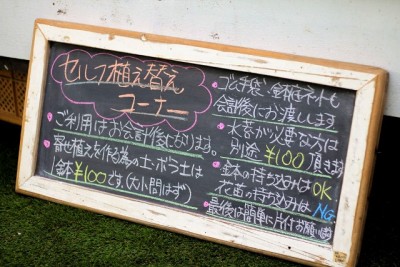 セルフ植え替え
コーナー
・ご利用はお会計後になります。
・寄せ植えを作る為の土・ボラ土は
1鉢¥100です。(大小問はず)
・ゴム手袋、鉢植ネットも
会計後にお渡しします
・水苔が必要な方は
別途 ¥100 頂きます
・鉢本の持ち込みはOK
花苗の持ち込みはNG
・最後は簡単に片付お願い致します